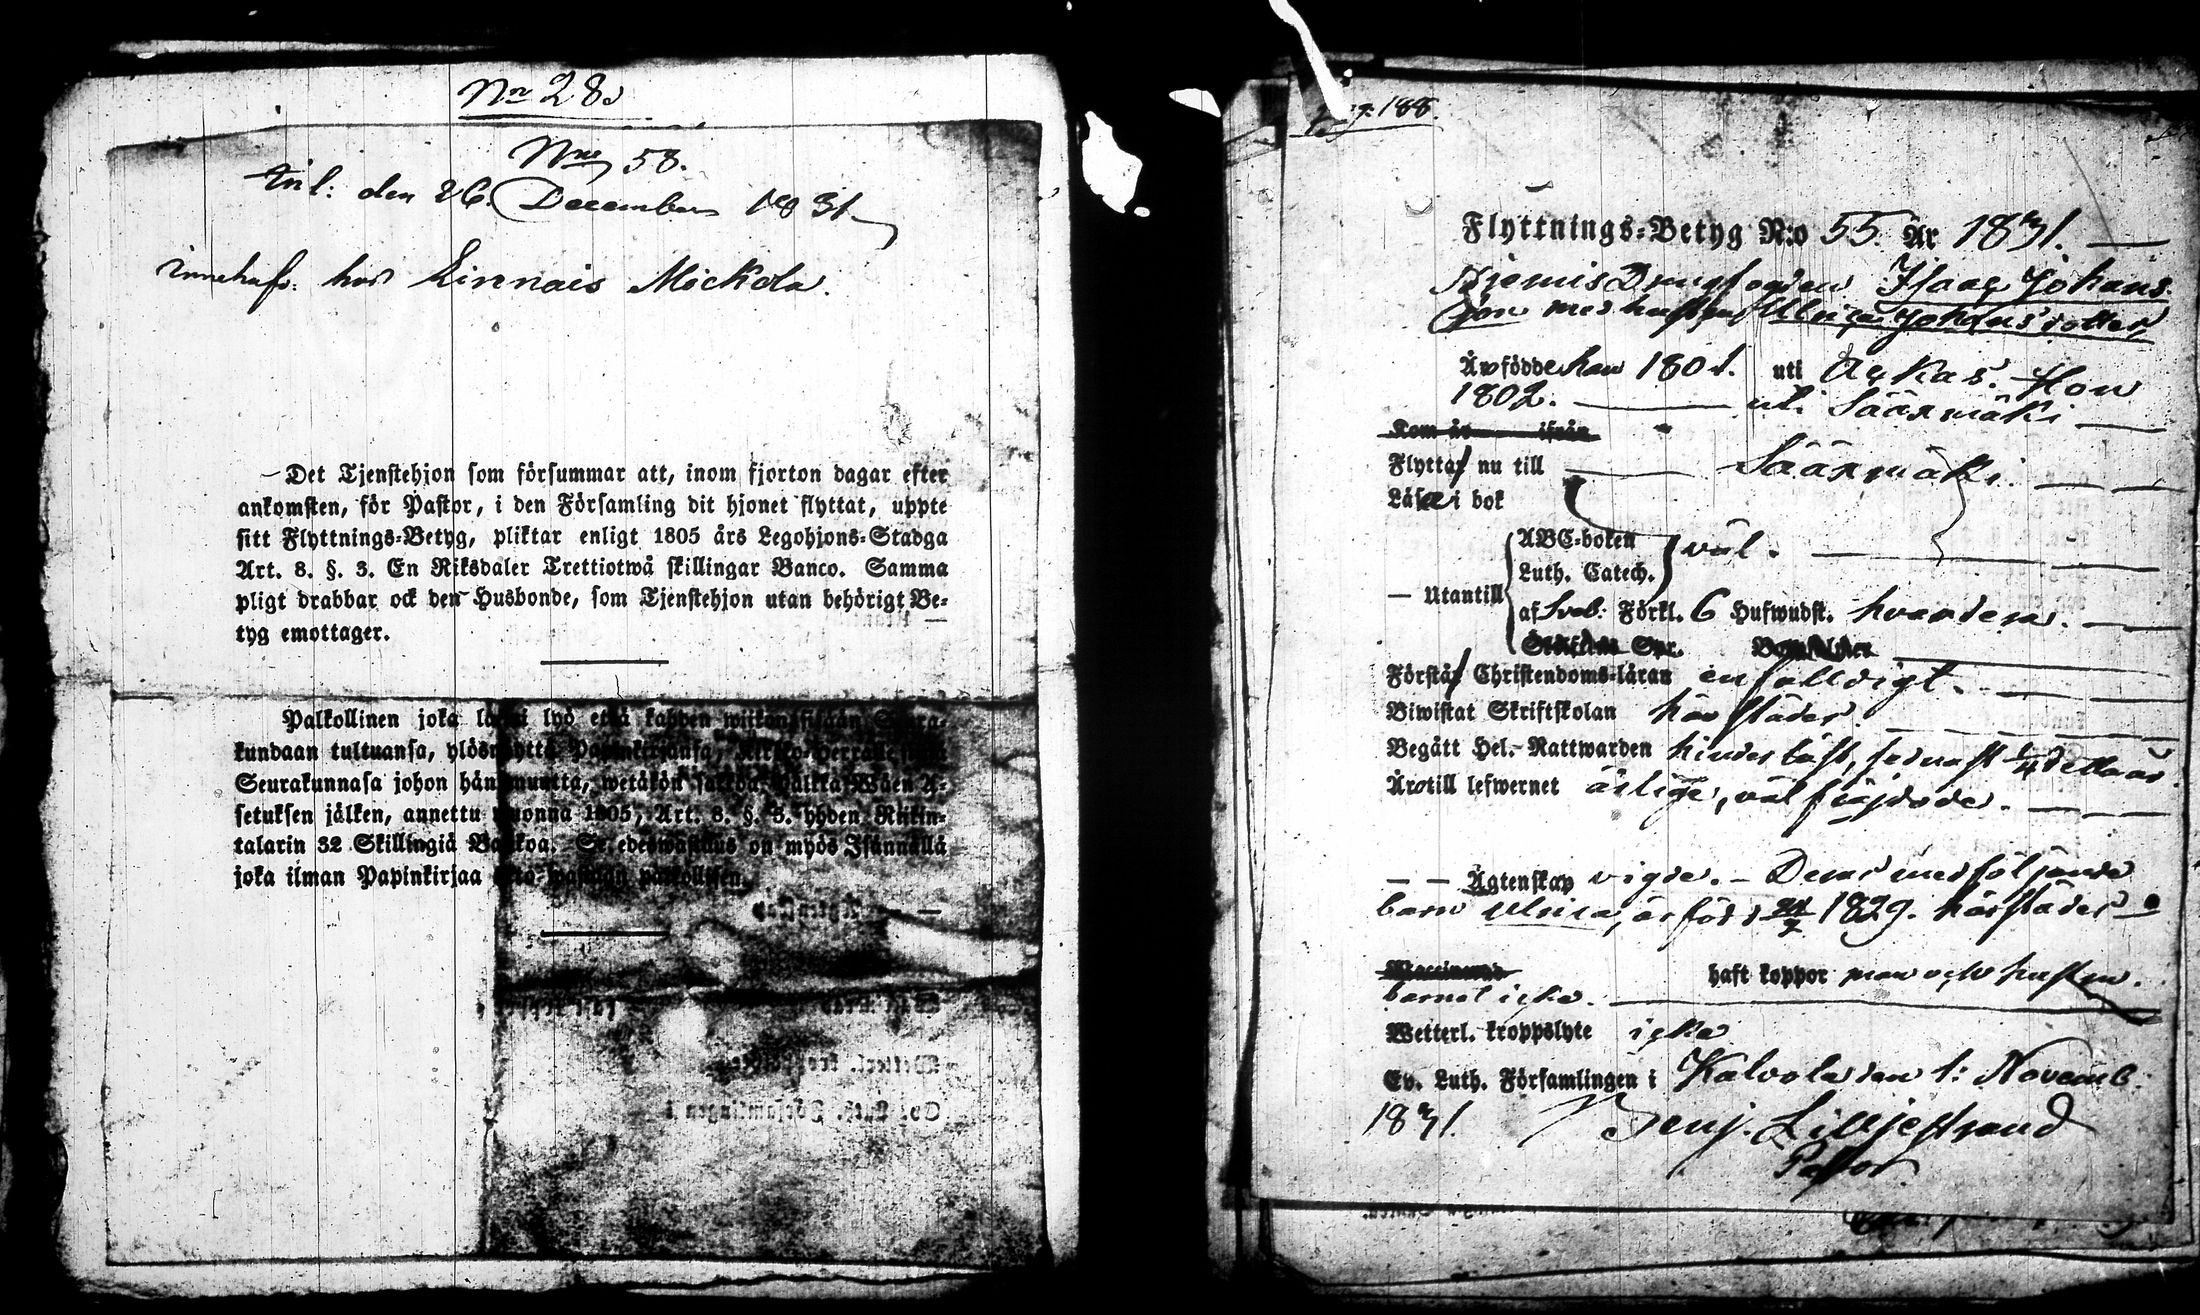 No 28.
No 58.
inl: den 26. December 1831
innehafv: hos Linnais Mickola.
Det Tjenstehjon som försummar att, inom fjorton dagar efter
ankomsten, för Pastor, i den Församling dit hjonet flyttat, uppte
sitt Flyttnings-Betyg, pliktar enligt 1805 års Legohjons-Stadga
Art. 8. §. 3. En Riksdaler Trettiotwå skillingar Banco. Samma
pligt drabbar ock den Husbonde, som Tjenstehjon utan behörigt Be-
tyg emottager.
Palkollinen joka lyö että kahden
kundaan tultuansa,
Seurakunnasa johon hän muutta, wetäkön sakkoa Palkka-Wäen A-
setuksen jälken, annettu wuonna 1805, Art. 8. §. 3. yhden Riikin-
talarin 32 Skillingiä Bankoa. on myös Isännällä
joka ilman Papinkirjaa
pag. 188.
Flyttnings-Betyg N:o 55. År 1831.
Isaac Johans
son med hustrun Ulrica Johansdotter
Äro födde han 1801. uti Ackas. Hon
1802. uti Sääxmäki
Kom år ifrån
Flytta nu till Sääxmäki.
Läsa i bok
ABC-boken
Luth. Catech. väl.
Utantill
af Sveb: Förkl. 6 Hufwudst. hvardera.
Förstå Christendoms-läran enfalldigt.
Biwistat Skriftskolan härstädes.
Begått Hel. Nattwarden
Äro till lefwernet ärlige, väl frejdade.
Ägtenskap vigde. Deras medföljande
barn Ulrica, är född 1829. härstädes
haft koppor man och hustru.
barnet icke.
Wetterl. kroppslyte icke
Ev. Luth. Församlingen i Kalvola den 1: Novemb.
1831. Benj. Lilljestrand
Pastor.